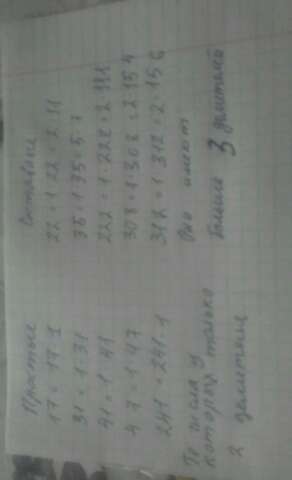 Простые
17 = 17 · 1
31 = 1 · 31
41 = 1 · 41
47 = 1 · 47
241 = 241 · 1
Те числа у
которых только
2 делителя
Составные
22 = 1 · 22 = 2 · 11
35 = 1 · 35 = 5 · 7
222 = 1 · 222 = 2 · 111
308 = 1 · 308 = 2 · 154
312 = 1 · 312 = 2 · 156
Они имеют
больше 3 делителей